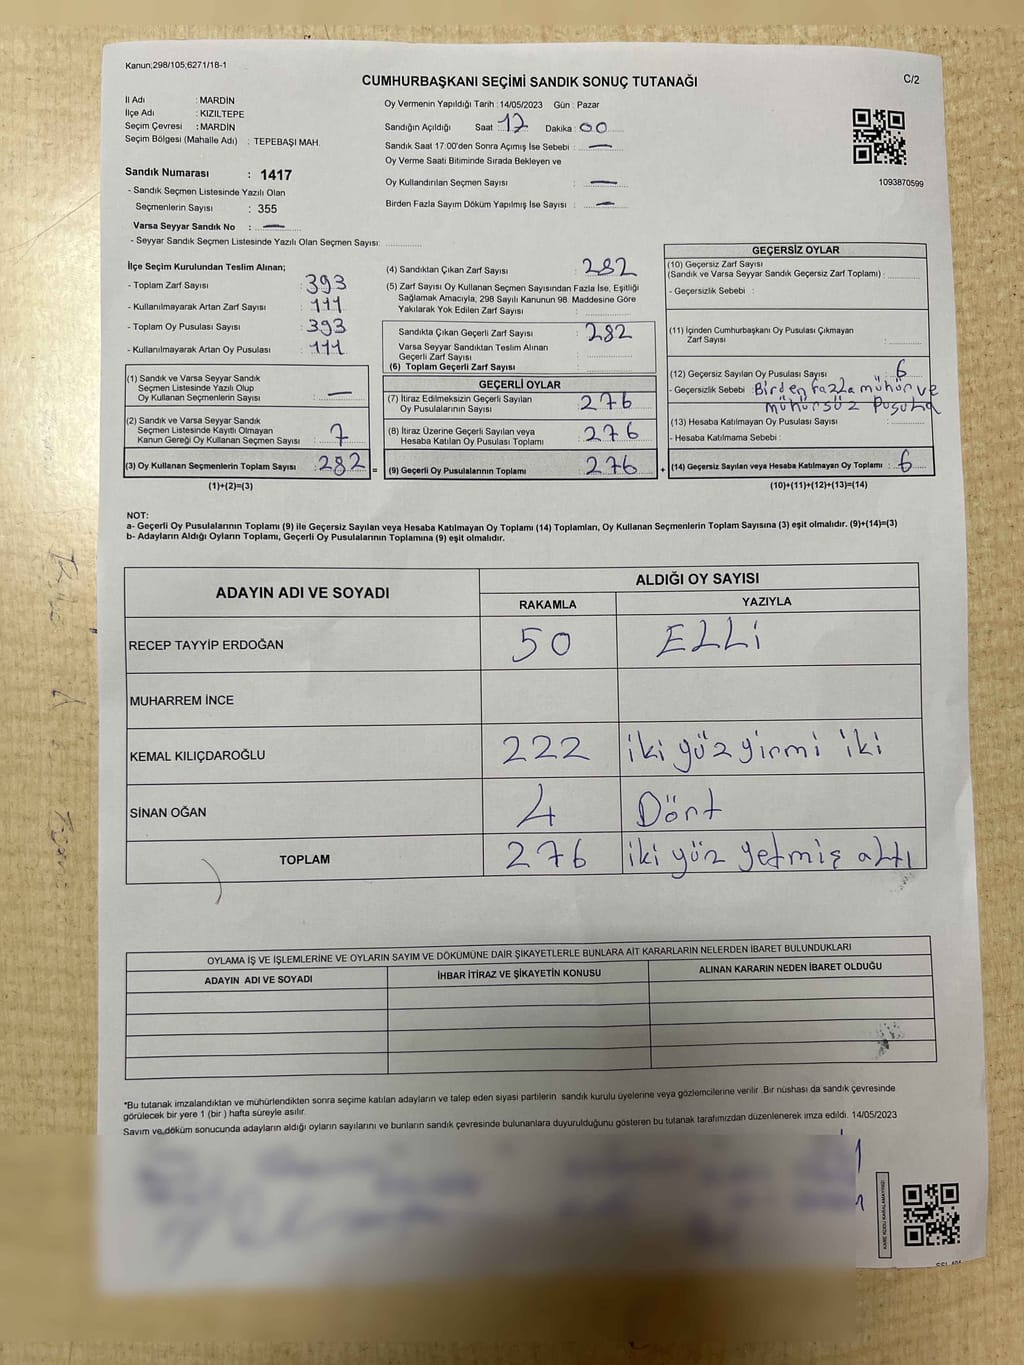 Kanun;298/105,6271/18-1
CUMHURBAŞKANI SEÇİMİ SANDIK SONUÇ TUTANAĞI
C/2
İl Adı : MARDİN
İlçe Adı : KIZILTEPE
Seçim Çevresi : MARDİN
Seçim Bölgesi (Mahalle Adı) : TEPEBAŞI MAH.
Sandık Numarası : 1417
- Sandık Seçmen Listesinde Yazılı Olan
Seçmenlerin Sayısı : 355
Varsa Seyyar Sandık No : —
- Seyyar Sandık Seçmen Listesinde Yazılı Olan Seçmen Sayısı:
Oy Vermenin Yapıldığı Tarih : 14/05/2023 Gün : Pazar
Sandığın Açıldığı Saat : 17 Dakika : 00
Sandık Saat 17:00'den Sonra Açımış İse Sebebi : —
Oy Verme Saati Bitiminde Sırada Bekleyen ve
Oy Kullandırılan Seçmen Sayısı : —
Birden Fazla Sayım Döküm Yapılmış İse Sayısı : —
1093870599
İlçe Seçim Kurulundan Teslim Alınan;
- Toplam Zarf Sayısı : 393
- Kullanılmayarak Artan Zarf Sayısı : 111
- Toplam Oy Pusulası Sayısı : 393
- Kullanılmayarak Artan Oy Pusulası : 111
(1) Sandık ve Varsa Seyyar Sandık
Seçmen Listesinde Yazılı Olup
Oy Kullanan Seçmenlerin Sayısı : —
(2) Sandık ve Varsa Seyyar Sandık
Seçmen Listesinde Kayıtlı Olmayan
Kanun Gereği Oy Kullanan Seçmen Sayısı : 7
(3) Oy Kullanan Seçmenlerin Toplam Sayısı : 282 =
(1)+(2)=(3)
(4) Sandıktan Çıkan Zarf Sayısı : 282
(5) Zarf Sayısı Oy Kullanan Seçmen Sayısından Fazla İse, Eşitliği
Sağlamak Amacıyla, 298 Sayılı Kanunun 98. Maddesine Göre
Yakılarak Yok Edilen Zarf Sayısı :
Sandıkta Çıkan Geçerli Zarf Sayısı : 282
Varsa Seyyar Sandıktan Teslim Alınan
Geçerli Zarf Sayısı :
(6) Toplam Geçerli Zarf Sayısı :
GEÇERLİ OYLAR
(7) İtiraz Edilmeksizin Geçerli Sayılan
Oy Pusulalarının Sayısı : 276
(8) İtiraz Üzerine Geçerli Sayılan veya
Hesaba Katılan Oy Pusulası Toplamı : 276
(9) Geçerli Oy Pusulalarının Toplamı : 276 +
GEÇERSİZ OYLAR
(10) Geçersiz Zarf Sayısı
(Sandık ve Varsa Seyyar Sandık Geçersiz Zarf Toplamı) :
- Geçersizlik Sebebi :
(11) İçinden Cumhurbaşkanı Oy Pusulası Çıkmayan
Zarf Sayısı :
(12) Geçersiz Sayılan Oy Pusulası Sayısı : 6
- Geçersizlik Sebebi : Birden fazla mühür ve
mühürsüz pusula
(13) Hesaba Katılmayan Oy Pusulası Sayısı :
- Hesaba Katılmama Sebebi :
(14) Geçersiz Sayılan veya Hesaba Katılmayan Oy Toplamı : 6
(10)+(11)+(12)+(13)=(14)
NOT:
a- Geçerli Oy Pusulalarının Toplamı (9) ile Geçersiz Sayılan veya Hesaba Katılmayan Oy Toplamı (14) Toplamları, Oy Kullanan Seçmenlerin Toplam Sayısına (3) eşit olmalıdır. (9)+(14)=(3)
b- Adayların Aldığı Oyların Toplamı, Geçerli Oy Pusulalarının Toplamına (9) eşit olmalıdır.
ADAYIN ADI VE SOYADI
ALDIĞI OY SAYISI
RAKAMLA YAZIYLA
RECEP TAYYİP ERDOĞAN 50 ELLİ
MUHARREM İNCE
KEMAL KILIÇDAROĞLU 222 iki yüz yirmi iki
SİNAN OĞAN 4 Dört
TOPLAM 276 iki yüz yetmiş altı
OYLAMA İŞ VE İŞLEMLERİNE VE OYLARIN SAYIM VE DÖKÜMÜNE DAİR ŞİKAYETLERLE BUNLARA AİT KARARLARIN NELERDEN İBARET BULUNDUKLARI
ADAYIN ADI VE SOYADI İHBAR İTİRAZ VE ŞİKAYETİN KONUSU ALINAN KARARIN NEDEN İBARET OLDUĞU
*Bu tutanak imzalandıktan ve mühürlendikten sonra seçime katılan adayların ve talep eden siyasi partilerin sandık kurulu üyelerine veya gözlemcilerine verilir. Bir nüshası da sandık çevresinde
görülecek bir yere 1 (bir ) hafta süreyle asılır.
Sayım ve döküm sonucunda adayların aldığı oyların sayılarını ve bunların sandık çevresinde bulunanlara duyurulduğunu gösteren bu tutanak tarafımızdan düzenlenerek imza edildi. 14/05/2023
KARE KODU KARALAMAYINIZ!